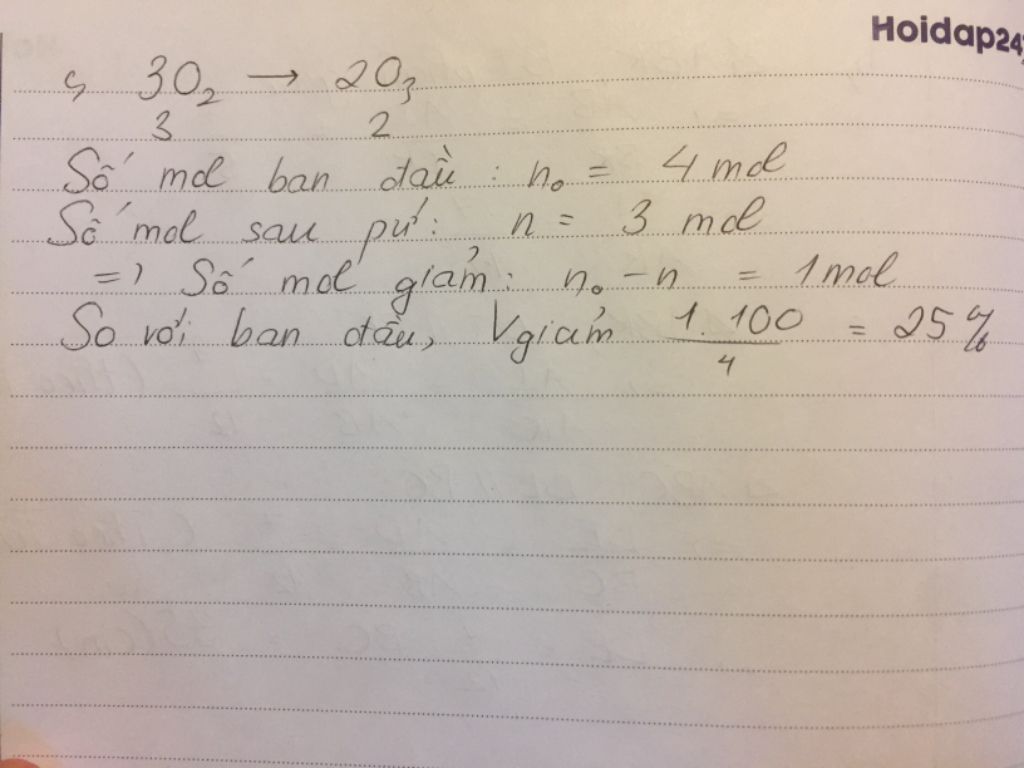 Hoidap247
c, 3O₂ → 2O₃
3 2
Số mol ban đầu : n₀ = 4 mol
Số mol sau pứ: n = 3 mol
=) Số mol giảm: n₀ - n = 1mol
So với ban đầu, Vgiảm 1.100/4 = 25%